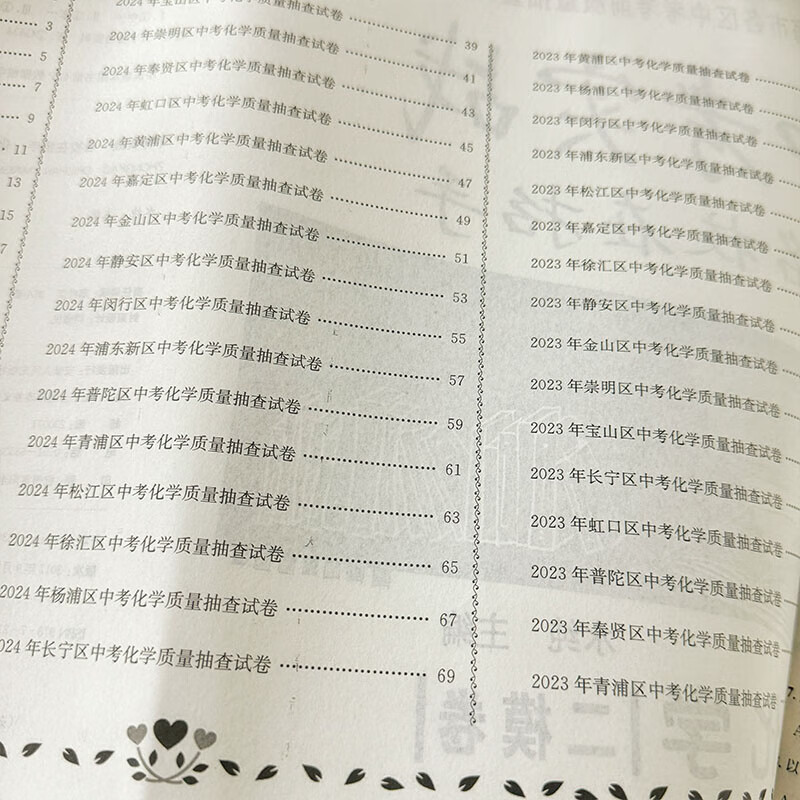 3
5
7
9
11
13
15
2024 年宝山区中考化学质量抽查试卷 39
2024 年崇明区中考化学质量抽查试卷 41
2024 年奉贤区中考化学质量抽查试卷 43
2024 年虹口区中考化学质量抽查试卷 45
2024 年黄浦区中考化学质量抽查试卷 47
2024 年嘉定区中考化学质量抽查试卷 49
2024 年金山区中考化学质量抽查试卷 51
2024 年静安区中考化学质量抽查试卷 53
2024 年闵行区中考化学质量抽查试卷 55
2024 年浦东新区中考化学质量抽查试卷 57
2024 年普陀区中考化学质量抽查试卷 59
2024 年青浦区中考化学质量抽查试卷 61
2024 年松江区中考化学质量抽查试卷 63
2024 年徐汇区中考化学质量抽查试卷 65
2024 年杨浦区中考化学质量抽查试卷 67
024 年长宁区中考化学质量抽查试卷 69
2023 年黄浦区中考化学质量抽查试卷
2023 年杨浦区中考化学质量抽查试卷
2023 年闵行区中考化学质量抽查试卷
2023 年浦东新区中考化学质量抽查试卷
2023 年松江区中考化学质量抽查试卷
2023 年嘉定区中考化学质量抽查试卷
2023 年徐汇区中考化学质量抽查试卷
2023 年静安区中考化学质量抽查试卷
2023 年金山区中考化学质量抽查试卷
2023 年崇明区中考化学质量抽查试卷
2023 年宝山区中考化学质量抽查试卷
2023 年长宁区中考化学质量抽查试卷
2023 年虹口区中考化学质量抽查试卷
2023 年普陀区中考化学质量抽查试卷
2023 年奉贤区中考化学质量抽查试卷
2023 年青浦区中考化学质量抽查试卷